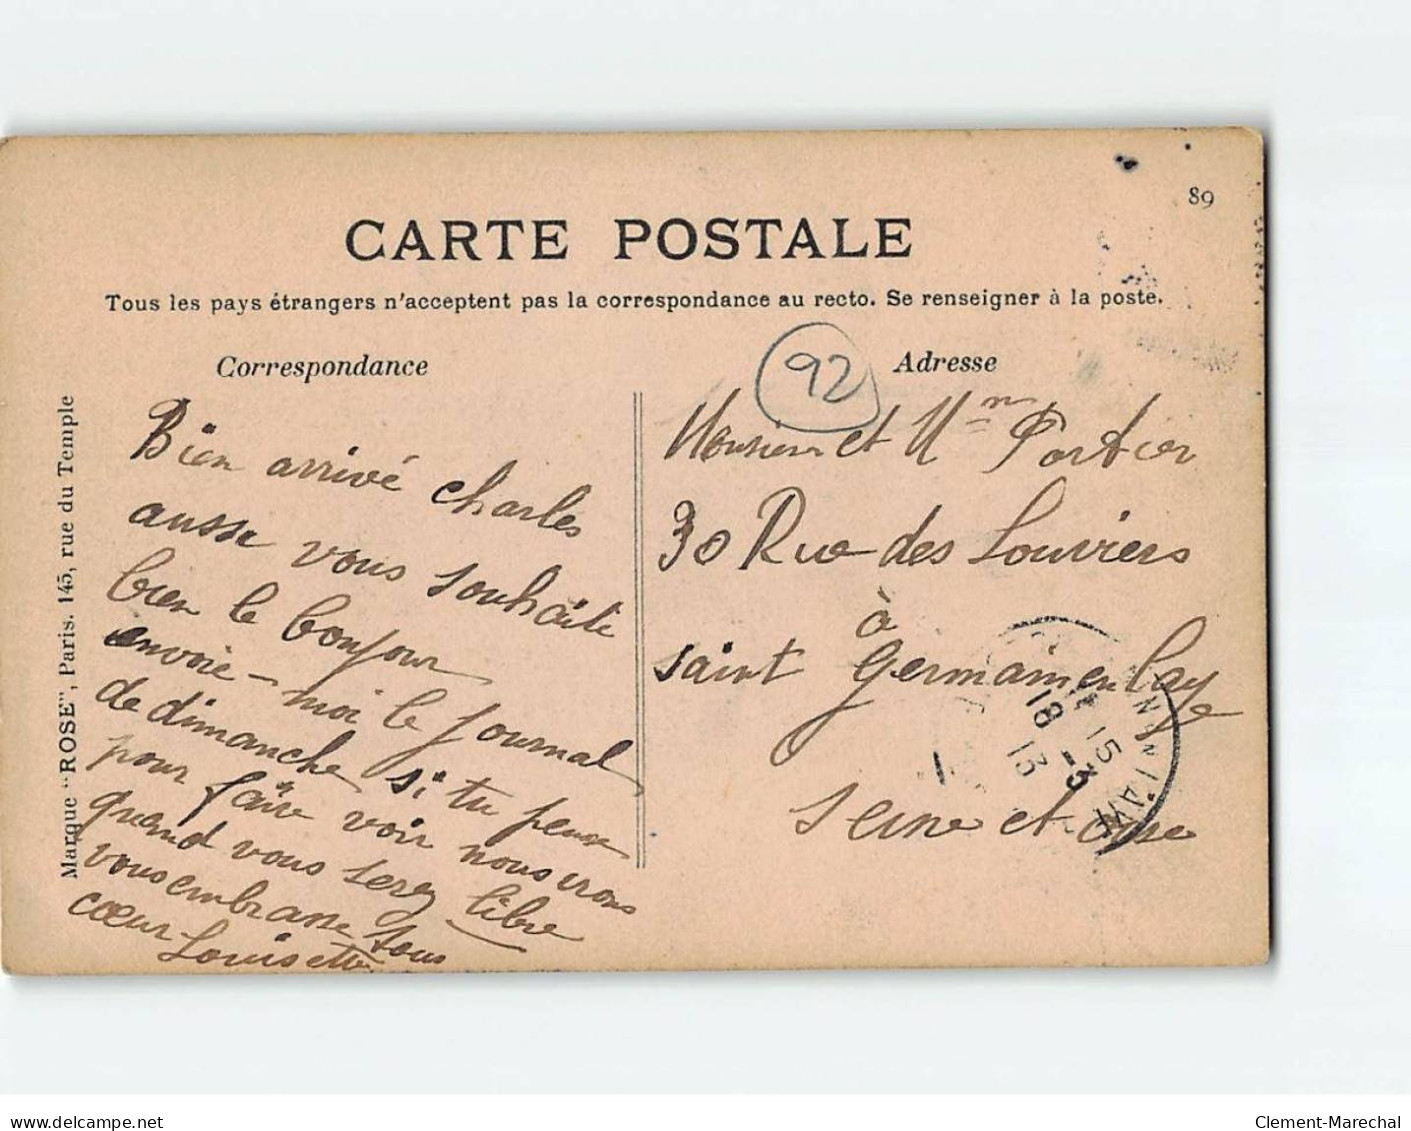 89
CARTE POSTALE
Tous les pays étrangers n'acceptent pas la correspondance au recto. Se renseigner à la poste.
Correspondance
92
Adresse
Marque "ROSE", Paris. 145, rue du Temple
Bien arrivé charles
aussi vous souhaite
bien le bonjour
envoie-moi le journal
de dimanche si tu peux
pour faire voir nous irons
quand vous serez libre
vous embrasse tous
cœur Louisette
Monsieur et Mm Portier
30 Rue des Louviers
à
saint Germain en Laye
Seine et oise
15
18 -3
13
www.delcampe.net
Clement-Marechal